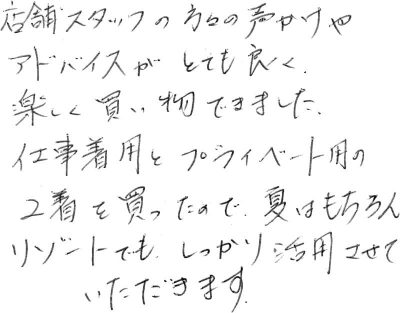 店舗スタッフの方々の声かけや
アドバイスがとても良く、
楽しく買い物できました。
仕事着用とプライベート用の
2着を買ったので、夏はもちろん
リゾートでも、しっかり活用させて
いただきます。